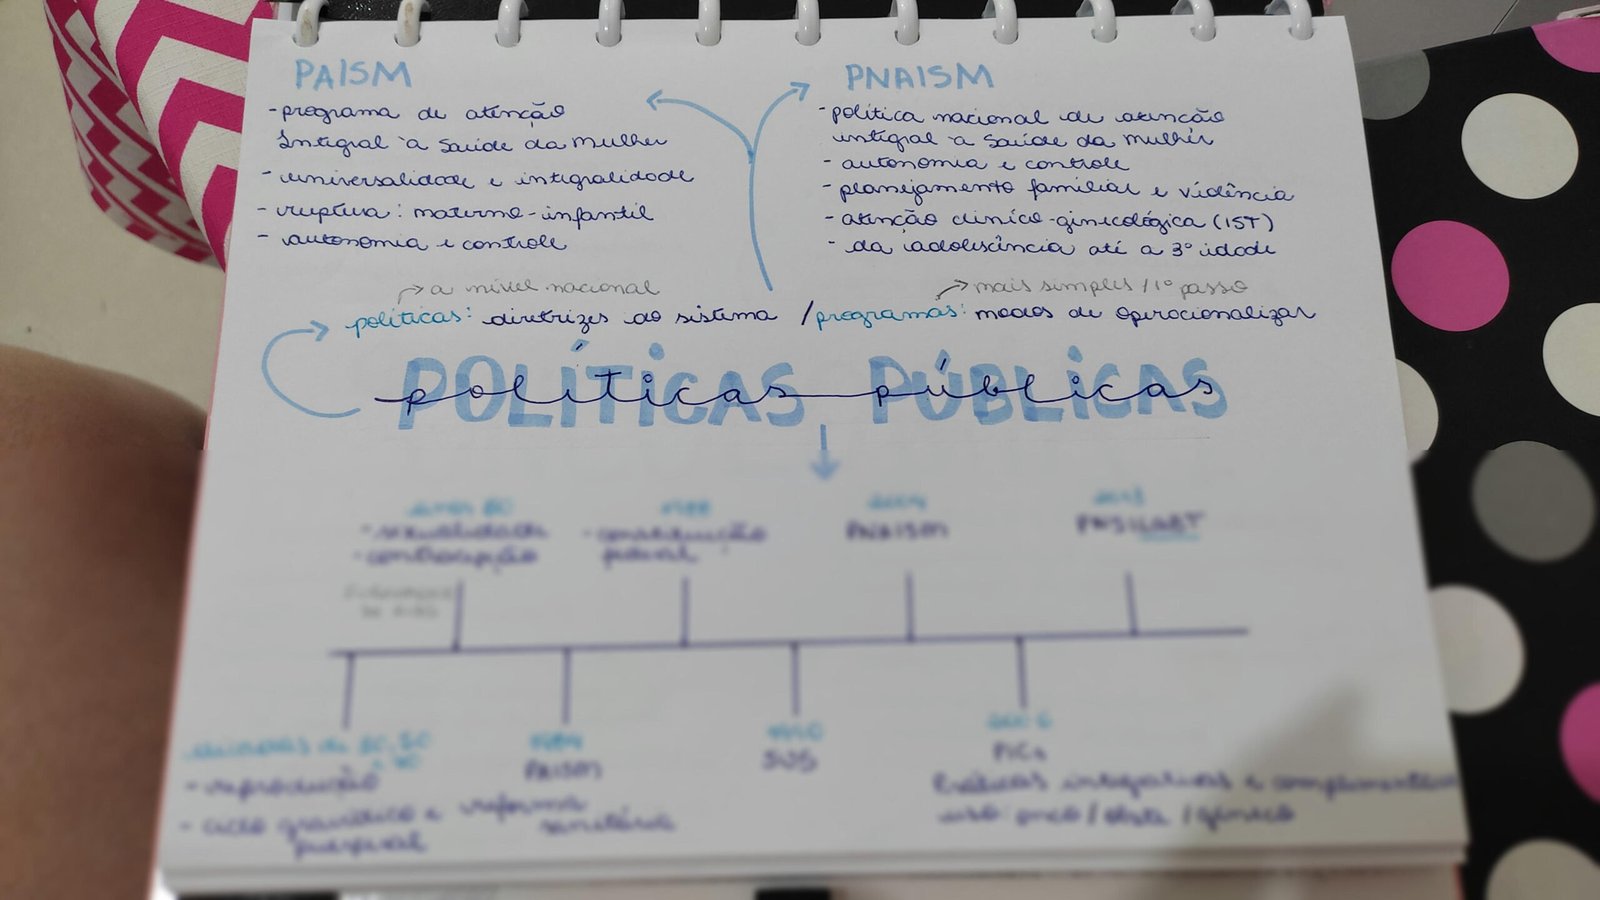 PAISM
- programa de atenção
Integral à Saúde da Mulher
- universalidade e integralidade
- ruptura: materno-infantil
- autonomia e controle
PNAISM
- política nacional de atenção
integral à Saúde da Mulher
- autonomia e controle
- planejamento familiar e
- atenção clínico-ginecológica (IST)
- da adolescência até a 3° idade
a nível nacional
mais simples / 1° passo
políticas: diretrizes do sistema / programas: modos de operacionalizar
POLÍTICAS PÚBLICAS
políticas públicas
anos 80
- sexualidade
- contracepção
1988
- constituição
PNAISM
décadas de
- reprodução
- ciclo gravídico e
puerperal
1984
PAISM
reforma
sanitária
1990
SUS
2006
PICs
Práticas integrativas e complementares
uso: onco / obst / gineco